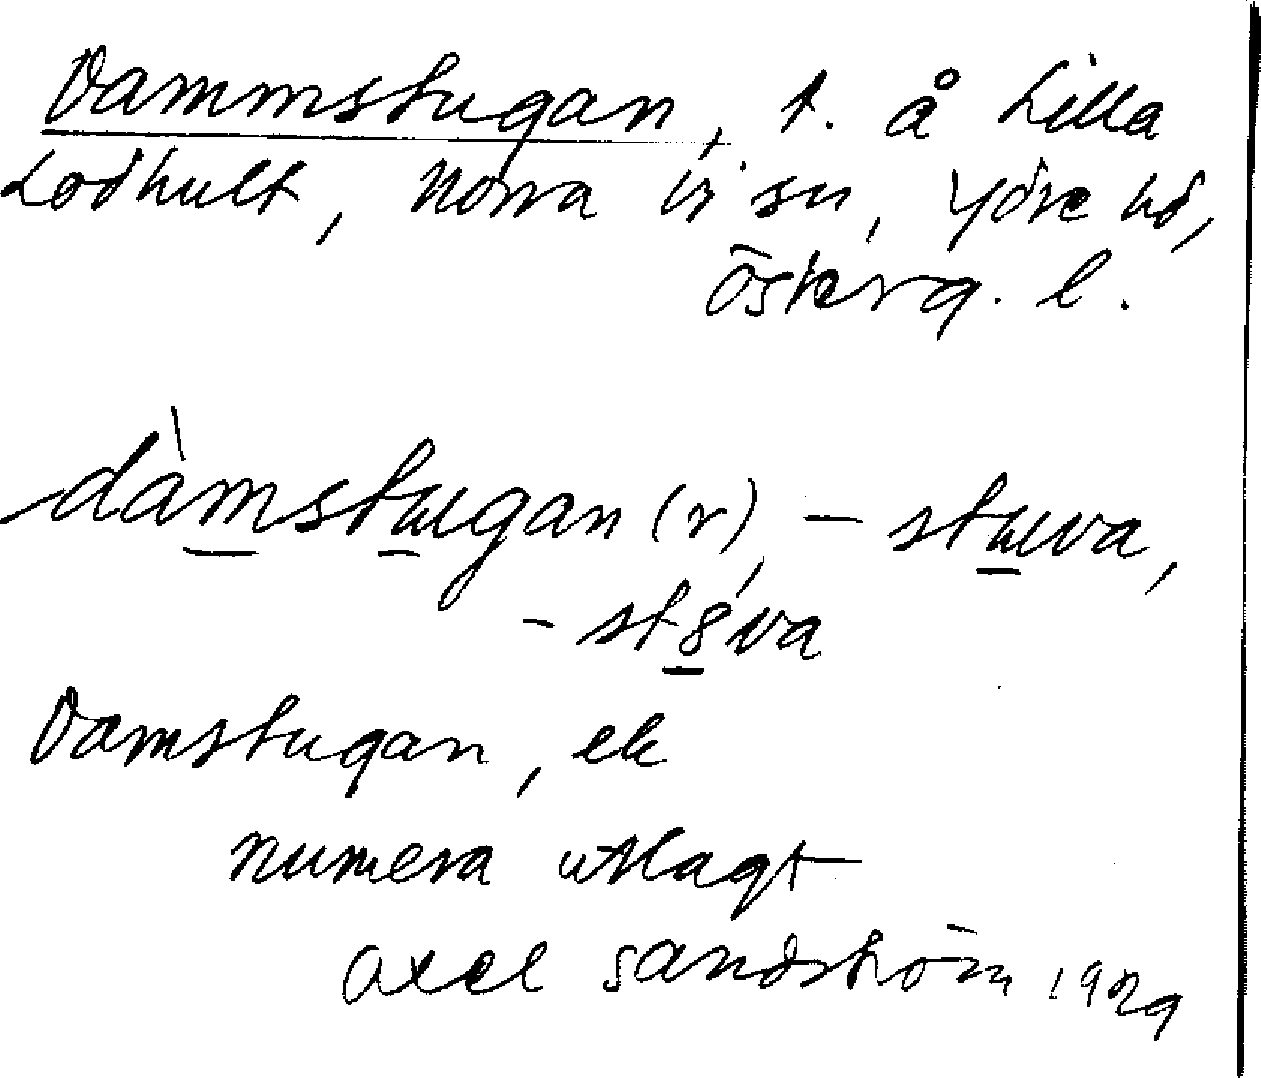 Dammstugan, t. å Lilla
Lodhult, Norra Vi sn, Ydre hd,
Österg. l.
dàmstugan (r), – stuva,
– stȣva
Damstugan, ek
numera utlagt
Axel Sandström 1929